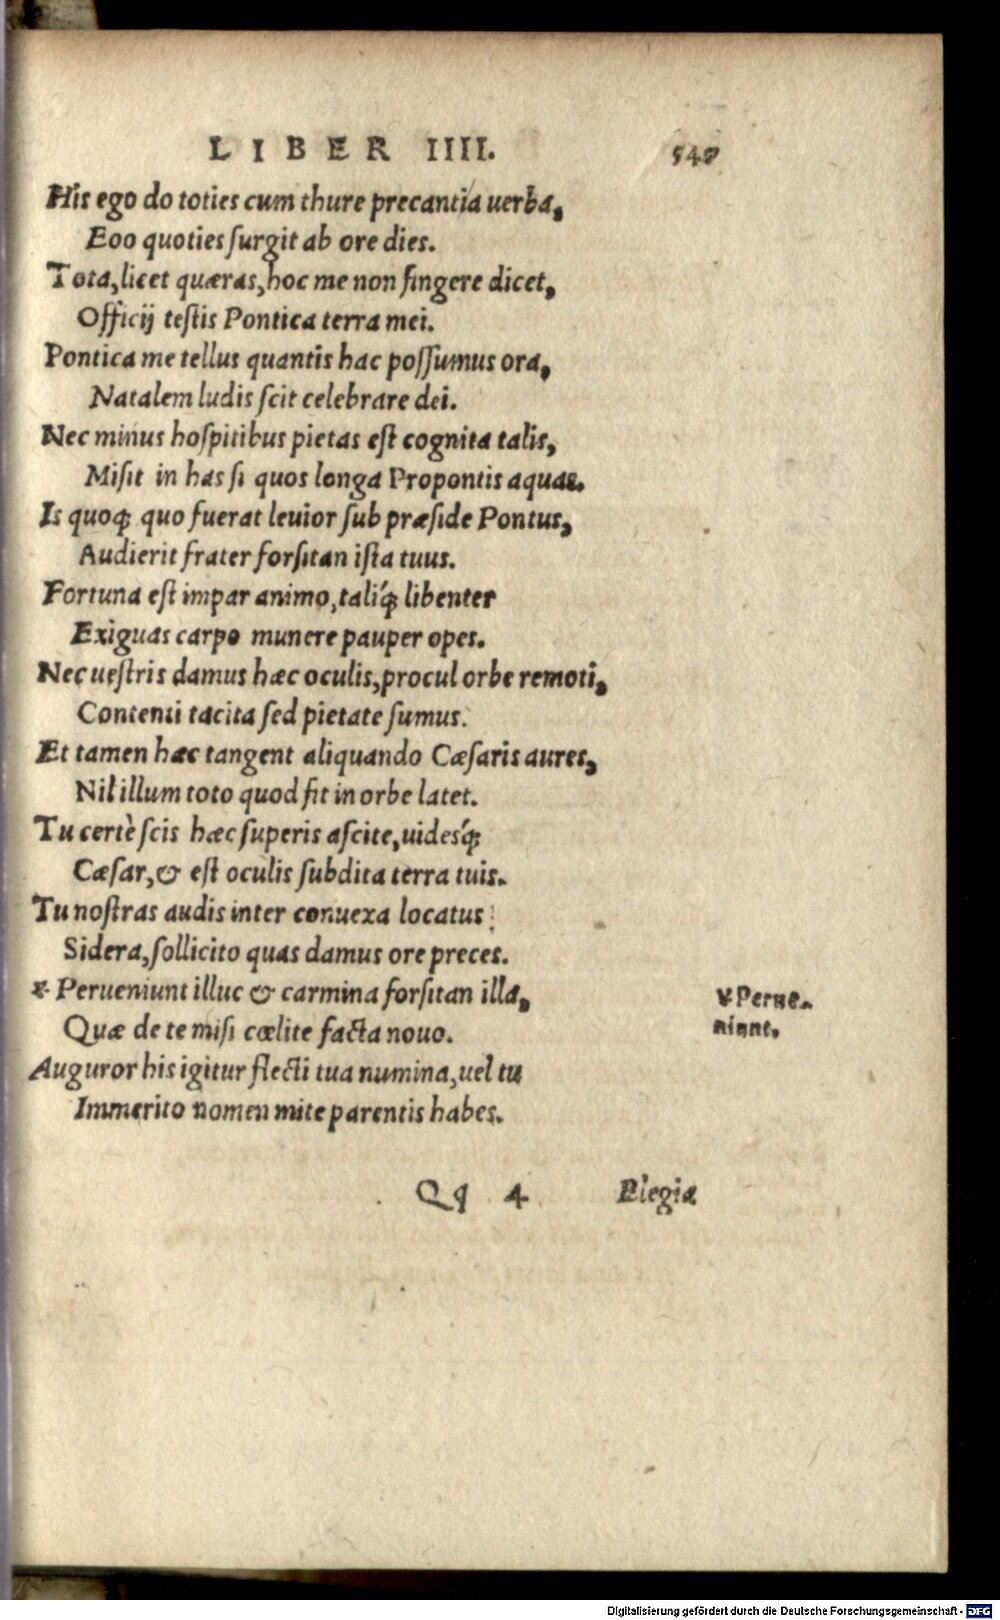 LIBER IIII.
His ego do toties cum thure precantia uerba,
Eoo quoties ſurgit ab ore dies.
Tota, licet quæras, hoc me non fingere dicet,
Officij teſtis Pontica terra mei.
Pontica me tellus quantis hac poſſumus ora,
Natalem ludis ſcit celebrare dei.
Nec minus hoſpitibus pietas eſt cognita talis,
Miſit in has ſi quos longa Propontis aquas.
Is quoq; quo fuerat leuior ſub præſide Pontus,
Audierit frater forſitan iſta tuus.
Fortuna eſt impar animo, taliq́; libenter
Exiguas carpo munere pauper opes.
Nec ueſtris damus hæc oculis, procul orbe remoti,
Contenti tacita ſed pietate ſumus.
Et tamen hæc tangent aliquando Cæſaris aures,
Nil illum toto quod fit in orbe latet.
Tu certè ſcis hæc ſuperis aſcite, uidesq́;
Cæſar, & eſt oculis ſubdita terra tuis.
Tu noſtras audis inter conuexa locatus
Sidera, ſollicito quas damus ore preces.
Perueniunt illuc & carmina forſitan illa,
Quæ de te miſi cœlite facta nouo.
Auguror his igitur flecti tua numina, uel tu
Immerito nomen mite parentis habes.
Qq 4 Elegiæ
Digitalisierung gefördert durch die Deutsche Forschungsgemeinschaft - DFG